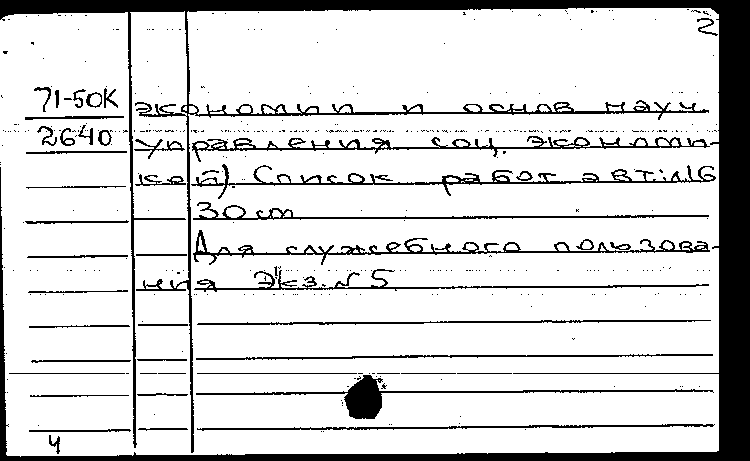 2
71-50К экономии и основ науч.
2640 управления соц. экономи-
кой). Список работ авт.: л.16
30 см
Для служебного пользова-
ния Экз. № 5
4